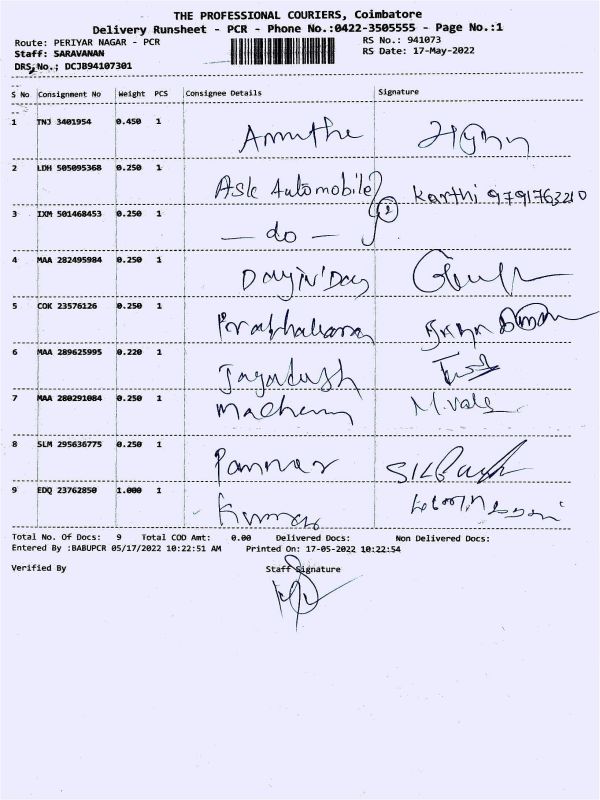 THE PROFESSIONAL COURIERS, Coimbatore
Delivery Runsheet - PCR - Phone No.:0422-3505555 - Page No.:1
Route: PERIYAR NAGAR - PCR RS No.: 941073
Staff: SARAVANAN RS Date: 17-May-2022
DRS No.: DCJB94107301
S No Consignment No Weight PCS Consignee Details Signature
1 TNJ 3401954 0.450 1
2 LDH 505095368 0.250 1 Ask Automobile 2 Karthi 9791763210
3 IXM 501468453 0.250 1 — do —
4 MAA 282495984 0.250 1
5 COK 23576126 0.250 1
6 MAA 289625995 0.220 1
7 MAA 280291084 0.250 1
8 SLM 295636775 0.250 1
9 EDQ 23762850 1.000 1 Kumar
Total No. Of Docs: 9 Total COD Amt: 0.00 Delivered Docs: Non Delivered Docs:
Entered By :BABUPCR 05/17/2022 10:22:51 AM Printed On: 17-05-2022 10:22:54
Verified By Staff Signature